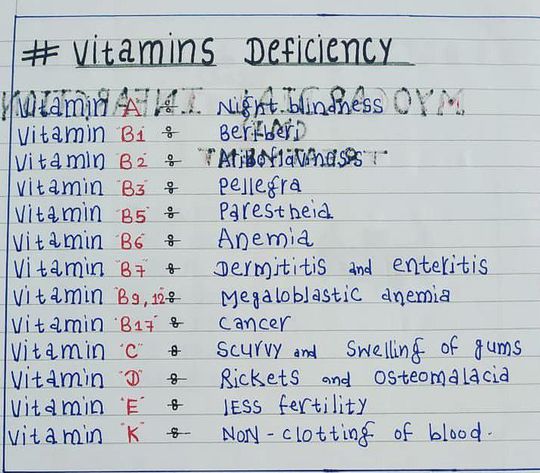 # Vitamins Deficiency
Vitamin "A" : Night blindness
Vitamin "B1" : Beriberi
Vitamin "B2" : Ariboflavinosis
Vitamin "B3" : Pellegra
Vitamin "B5" : Parestheia
Vitamin "B6" : Anemia
Vitamin "B7" : Dermititis and enteritis
Vitamin "B9,12" : Megaloblastic anemia
Vitamin "B17" : Cancer
Vitamin "C" : Scurvy and Swelling of gums
Vitamin "D" : Rickets and Osteomalacia
Vitamin "E" : less fertility
Vitamin "K" : NON-clotting of blood.